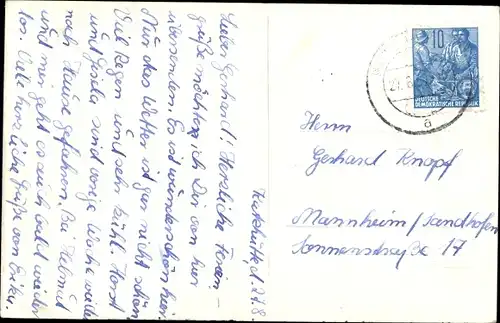 Lieber Gerhard! Herzliche Ferien-
grüße möchte ich Dir von hier
übersenden. Es ist wunderschön hier.
Nur das Wetter ist gar nicht schön.
Viel Regen und sehr kühl. Horst
und Gisela sind vorige Woche wieder
nach Hause gefahren. Bei Helmut
und mir geht es auch bald wieder
los. Viele herzliche Grüße von Erika.
d. 27.8.
10
DEUTSCHE
DEMOKRATISCHE REPUBLIK
a
Herrn
Gerhard Knopf
Mannheim/Sandhofen
Sonnenstraße 17